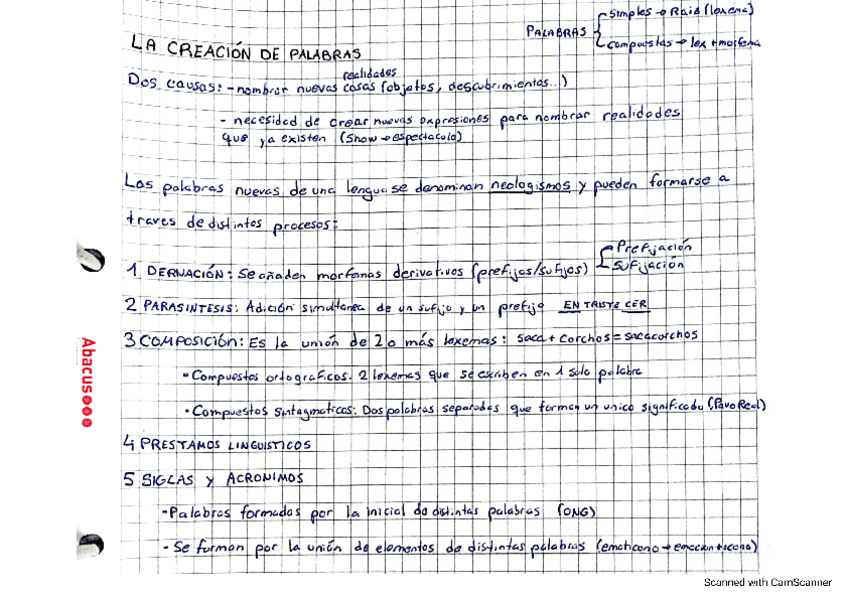 PALABRAS
simples → Raíz (lexema)
compuestas → lex + morfema
LA CREACIÓN DE PALABRAS
realidades
Dos causas: - nombrar nuevas cosas (objetos, descubrimientos...)
- necesidad de crear nuevas expresiones para nombrar realidades
que ya existen (Show → espectaculo)
Las palabras nuevas de una lengua se denominan neologismos y pueden formarse a
traves de distintos procesos:
1 DERIVACIÓN: Se añaden morfemas derivativos (prefijos/sufijos)
Prefijación
Sufijación
2 PARASINTESIS: Adición simultanea de un sufijo y un prefijo EN TRISTE CER
3 COMPOSICIÓN: Es la unión de 2 o más lexemas: saca + corchos = sacacorchos
• Compuestos ortograficos: 2 lexemas que se escriben en 1 sola palabra
• Compuestos sintagmaticos: Dos palabras separadas que forman un unico significado (Pavo Real)
4 PRESTAMOS LINGUISTICOS
5 SIGLAS Y ACRONIMOS
- Palabras formadas por la inicial de distintas palabras (ONG)
- Se forman por la unión de elementos de distintas palabras (emoticono → emoción + icono)
Abacus
Scanned with CamScanner